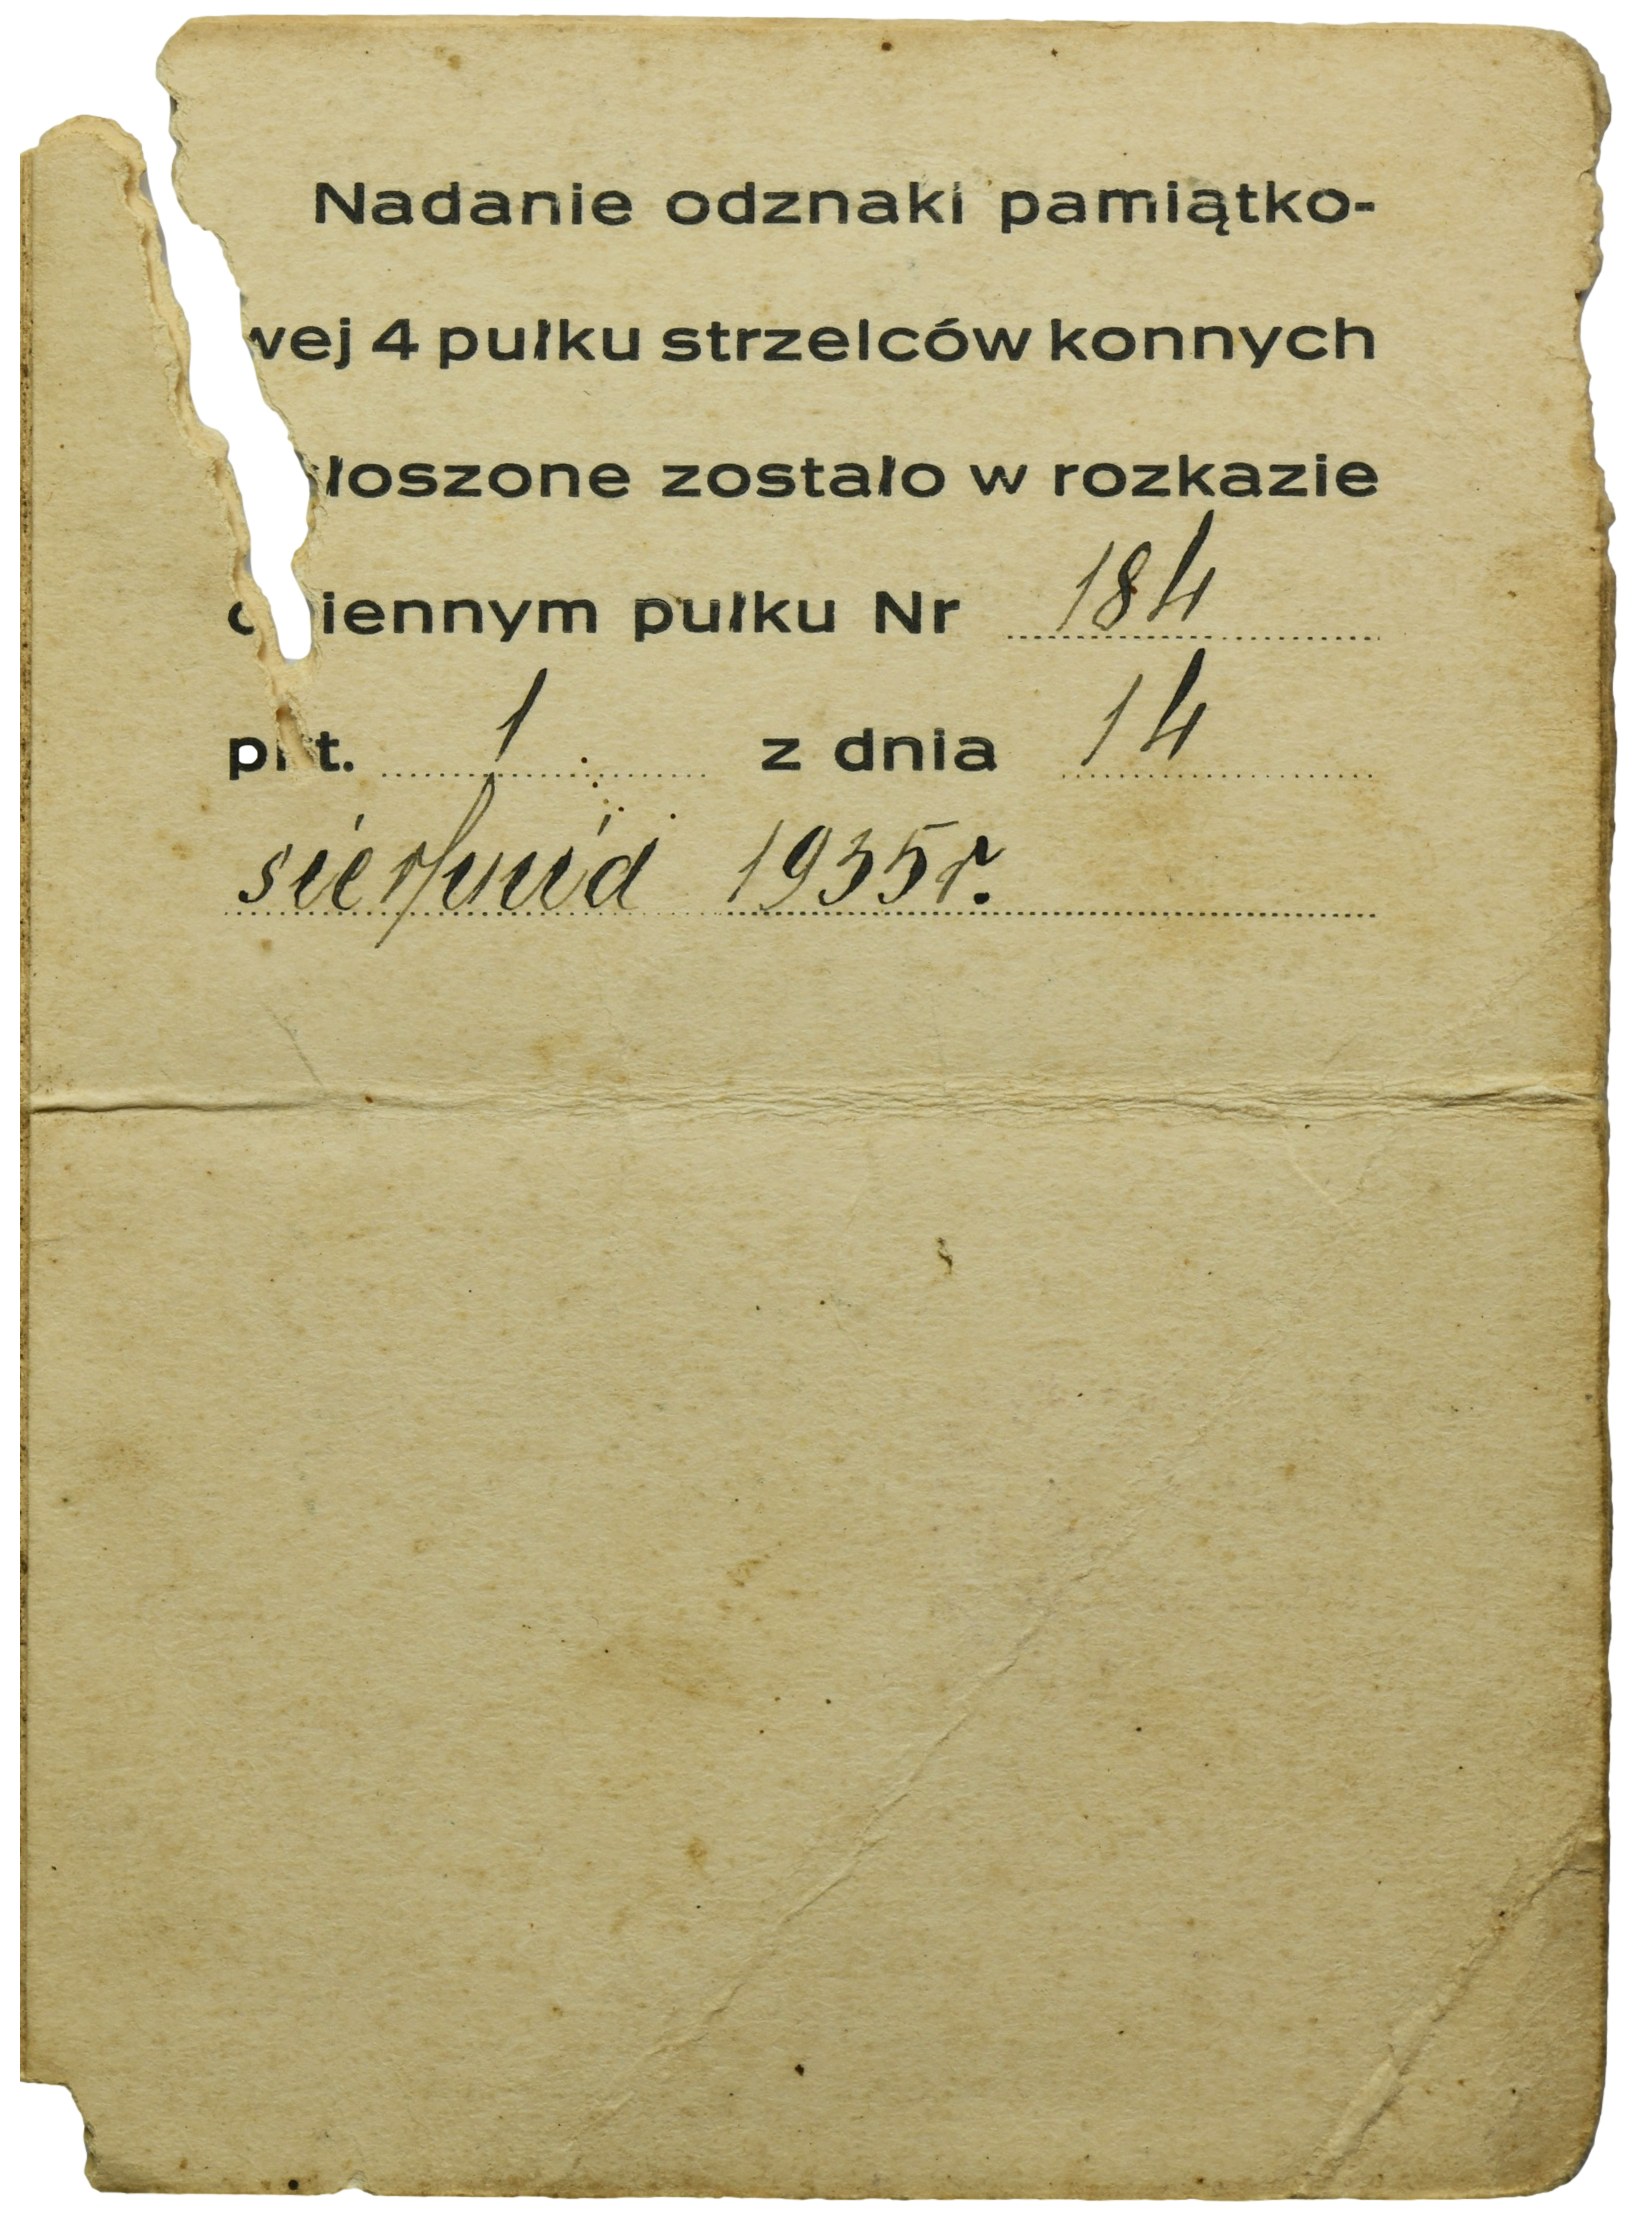 Nadanie odznaki pamiątko-
wej 4 pułku strzelców konnych
łoszone zostało w rozkazie
iennym pułku Nr 184
pkt. 1 z dnia 14
sierpnia 1935 r.